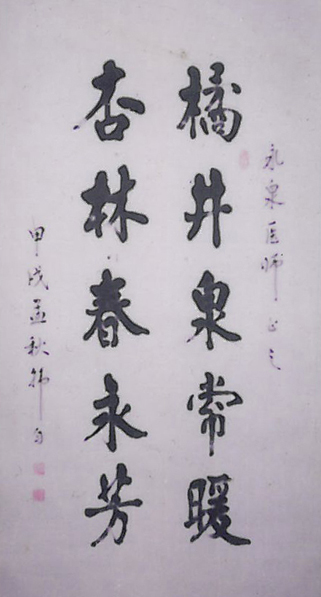 永泉医师正之
橘井泉常暖
杏林春永芳
甲戌孟秋韩